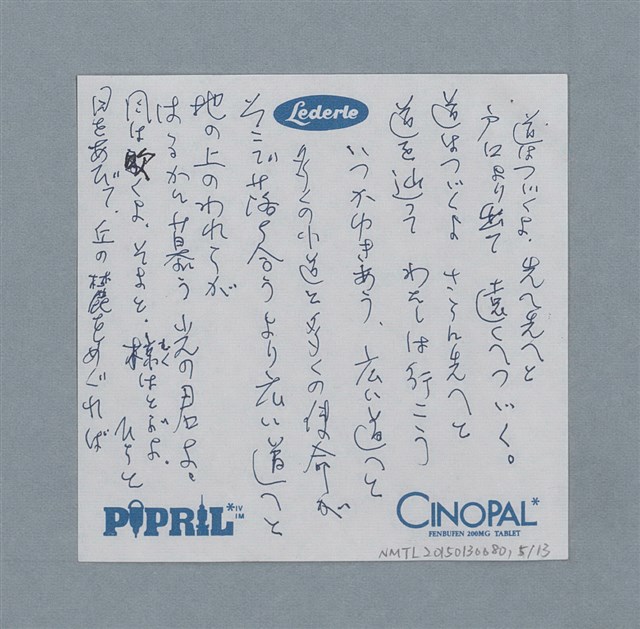 Lederle
道はつづくよ、先へ先へと
戸口より出て 遠くへつづく。
道はつづくよ さらに先へと
道を辿って わたしは行こう
いつかゆきあう、広い道へと
多くの小道と多くの使命が
そこで落ち合うより広い道へと
地の上のわれらが
はるかに慕う光の君よ。
くよ、そよと、はとぶよ。
をあびて、丘の麓をめぐれば
PIPRIL* IV IM
CINOPAL*
FENBUFEN 200MG TABLET
NMTL20150130680, 5/13